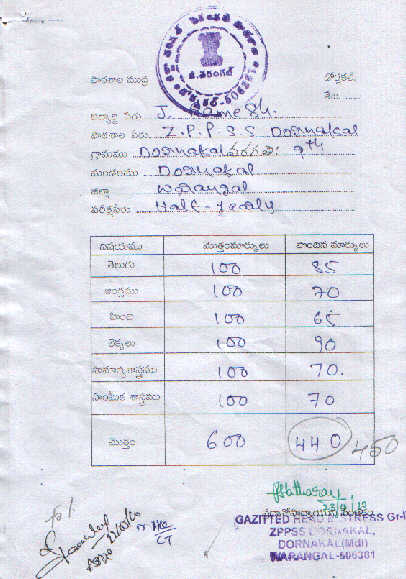 పాఠశాల ముద్ర
విద్యార్థి పేరు J. Rame8h.
పాఠశాల పేరు Z.P.P S S Dornakal
గ్రామము Dornakal తరగతి: 9th
మండలము Dornakal
జిల్లా Warangal
పరీక్షపేరు Half-yearly
విషయము మొత్తంమార్కులు పొందిన మార్కులు
తెలుగు 100 85
ఆంగ్లము 100 70
హింది 100 65
లెక్కలు 100 90
సామాన్యశాస్త్రము 100 70.
సాంఘిక శాస్త్రము 100 70
మొత్తం 600 440 450
GAZITTED HEAD MISTRESS Gr-I
ZPPSS DORNAKAL,
DORNAKAL(Mdl)
WARANGAL-506381